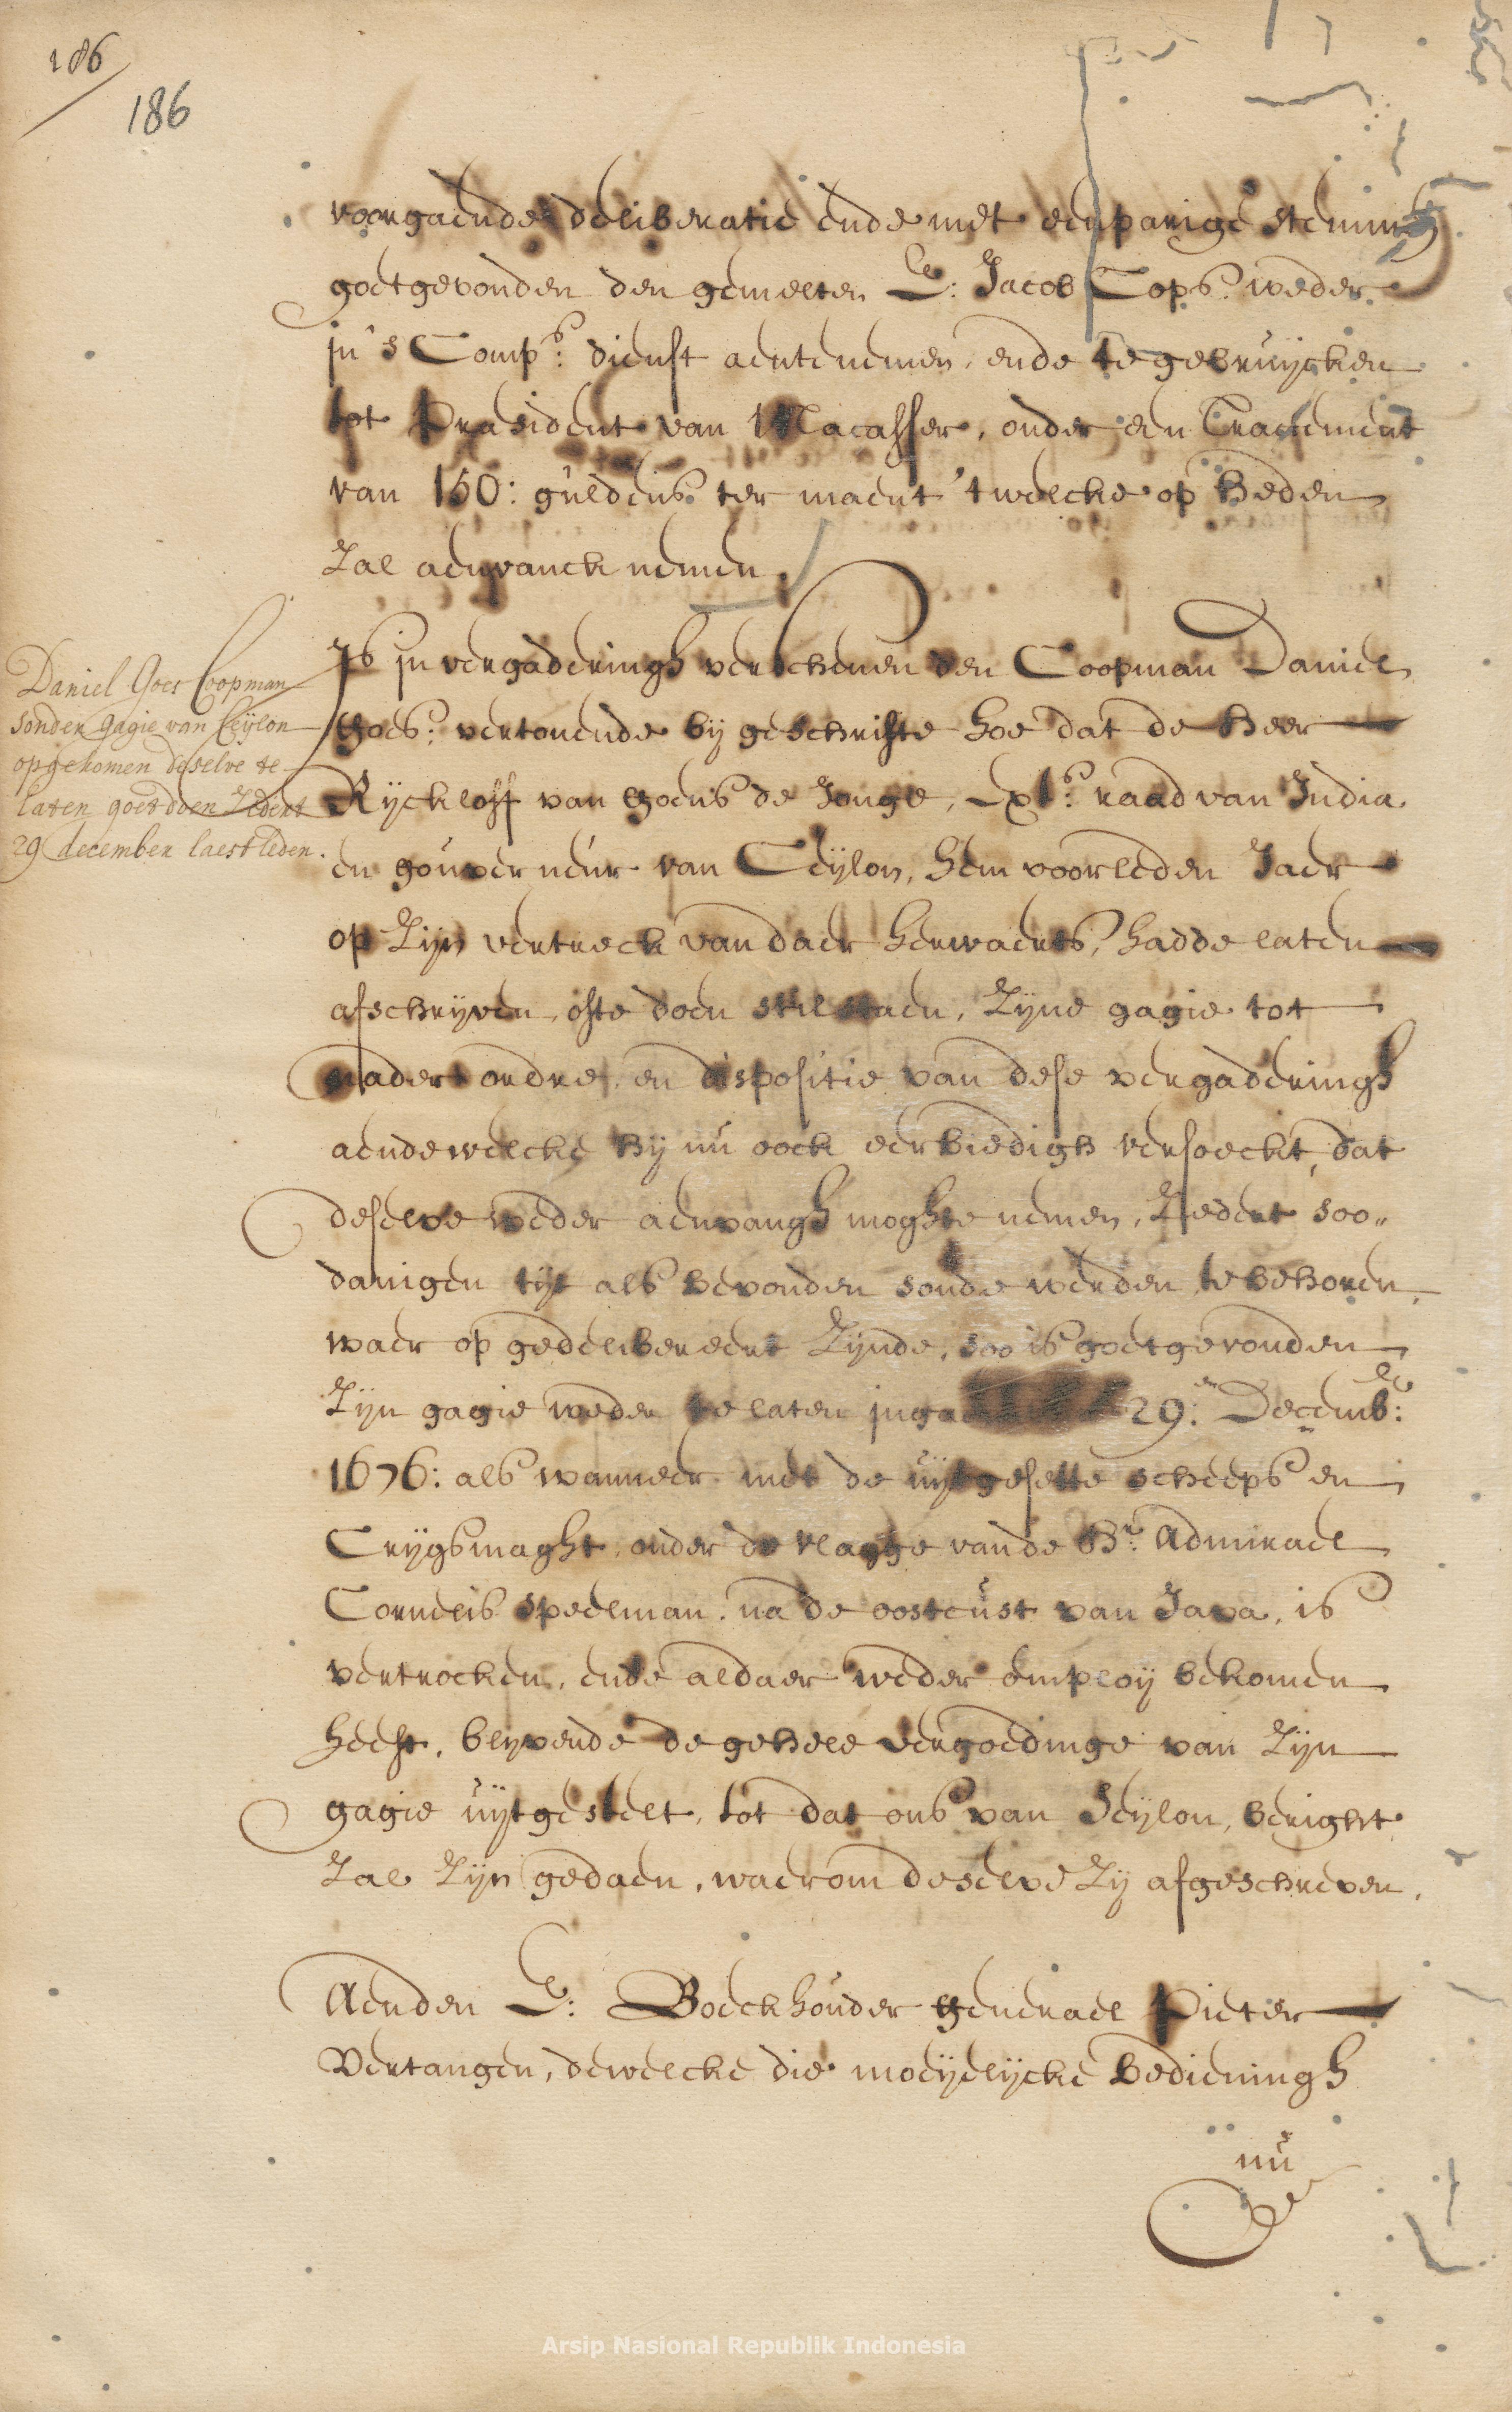 186
186
voorgaende deliberatie ende met eenparige stemmen
goetgevonden den gemelten E: Jacob Cops weder
in 's Comps: dienst aentenemen, ende te gebruijcken
tot President van Macasser, onder een Tractement
van 150: guldens ter maent 't welcke op heden
Zal aenvanck nemen.
Daniel Goes Coopman
sonder gagie van Ceijlon
opgekomen deselve te
laten goet doen Zedert
29 december laestleden.
Is in vergaderingh verschenen den Coopman Daniel
Goes: vertonende bij geschrifte hoe dat de Heer
Rijckloff van Goens de Jonge, Exts: raad van India
en gouverneur van Ceijlon, hem voorleden Jaer
op Zijn vertreck van daer herwaerts, hadde laten
afschrijven, ofte doen stilstaen, Zijne gagie tot
nader ordre, en dispositie van dese vergaderingh
aendewelcke hij nu oock eerbiedigh versoeckt, dat
deselve weder aenvangh moghte nemen, Zedert soo„
danigen tijt als bevonden soude werden te behoren,
waer op gedelibereert Zijnde, soo is goetgevonden
Zijn gagie weder te laten 29:en Decemb:
1676: als wanneer met de uijtgesette scheeps en
Crijgsmaght onder de vlagge vande Hr: Admirael
Cornelis Speelman. na de oostcust van Java, is
vertrocken, ende aldaer weder emploij bekomen
heeft. blijvende de geheele vergoedinge van Zijn
gagie uijtgestelt, tot dat ons van Ceijlon, beright
Zal Zijn gedaen, waerom deselve Zij afgeschreven.
Aenden E: Boeckhouder Generael Pieter
Vertangen, dewelcke die moeijelijcke bedieningh
nu
Arsip Nasional Republik Indonesia